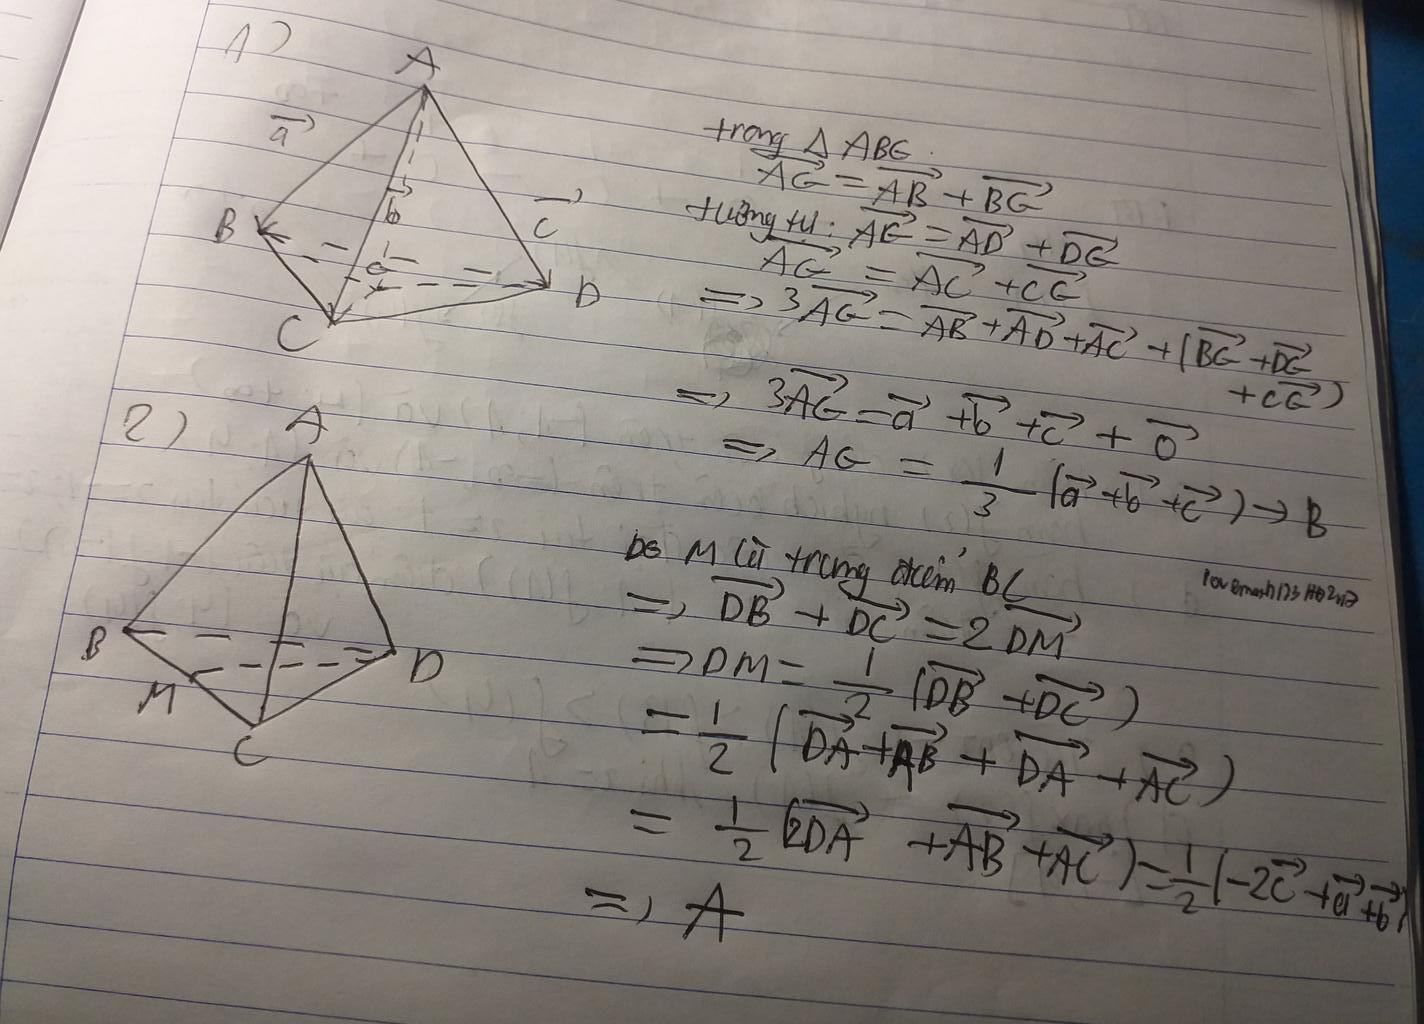 1)
A
a⃗
b⃗
c⃗
B
G
D
C
trong Δ ABG
AG⃗ = AB⃗ + BG⃗
tương tự: AG⃗ = AD⃗ + DG⃗
AG⃗ = AC⃗ + CG⃗
=> 3AG⃗ = AB⃗ + AD⃗ + AC⃗ + (BG⃗ + DG⃗
+ CG⃗)
=> 3AG⃗ = a⃗ + b⃗ + c⃗ + 0⃗
=> AG = 1/3 (a⃗ + b⃗ + c⃗) → B
2)
A
B
M
D
C
M là trung điểm BC
=> DB⃗ + DC⃗ = 2DM⃗
=> DM = 1/2 (DB⃗ + DC⃗)
= 1/2 (DA⃗ + AB⃗ + DA⃗ + AC⃗)
= 1/2 (2DA⃗ + AB⃗ + AC⃗) = 1/2 (-2c⃗ + a⃗ + b⃗)
=> A